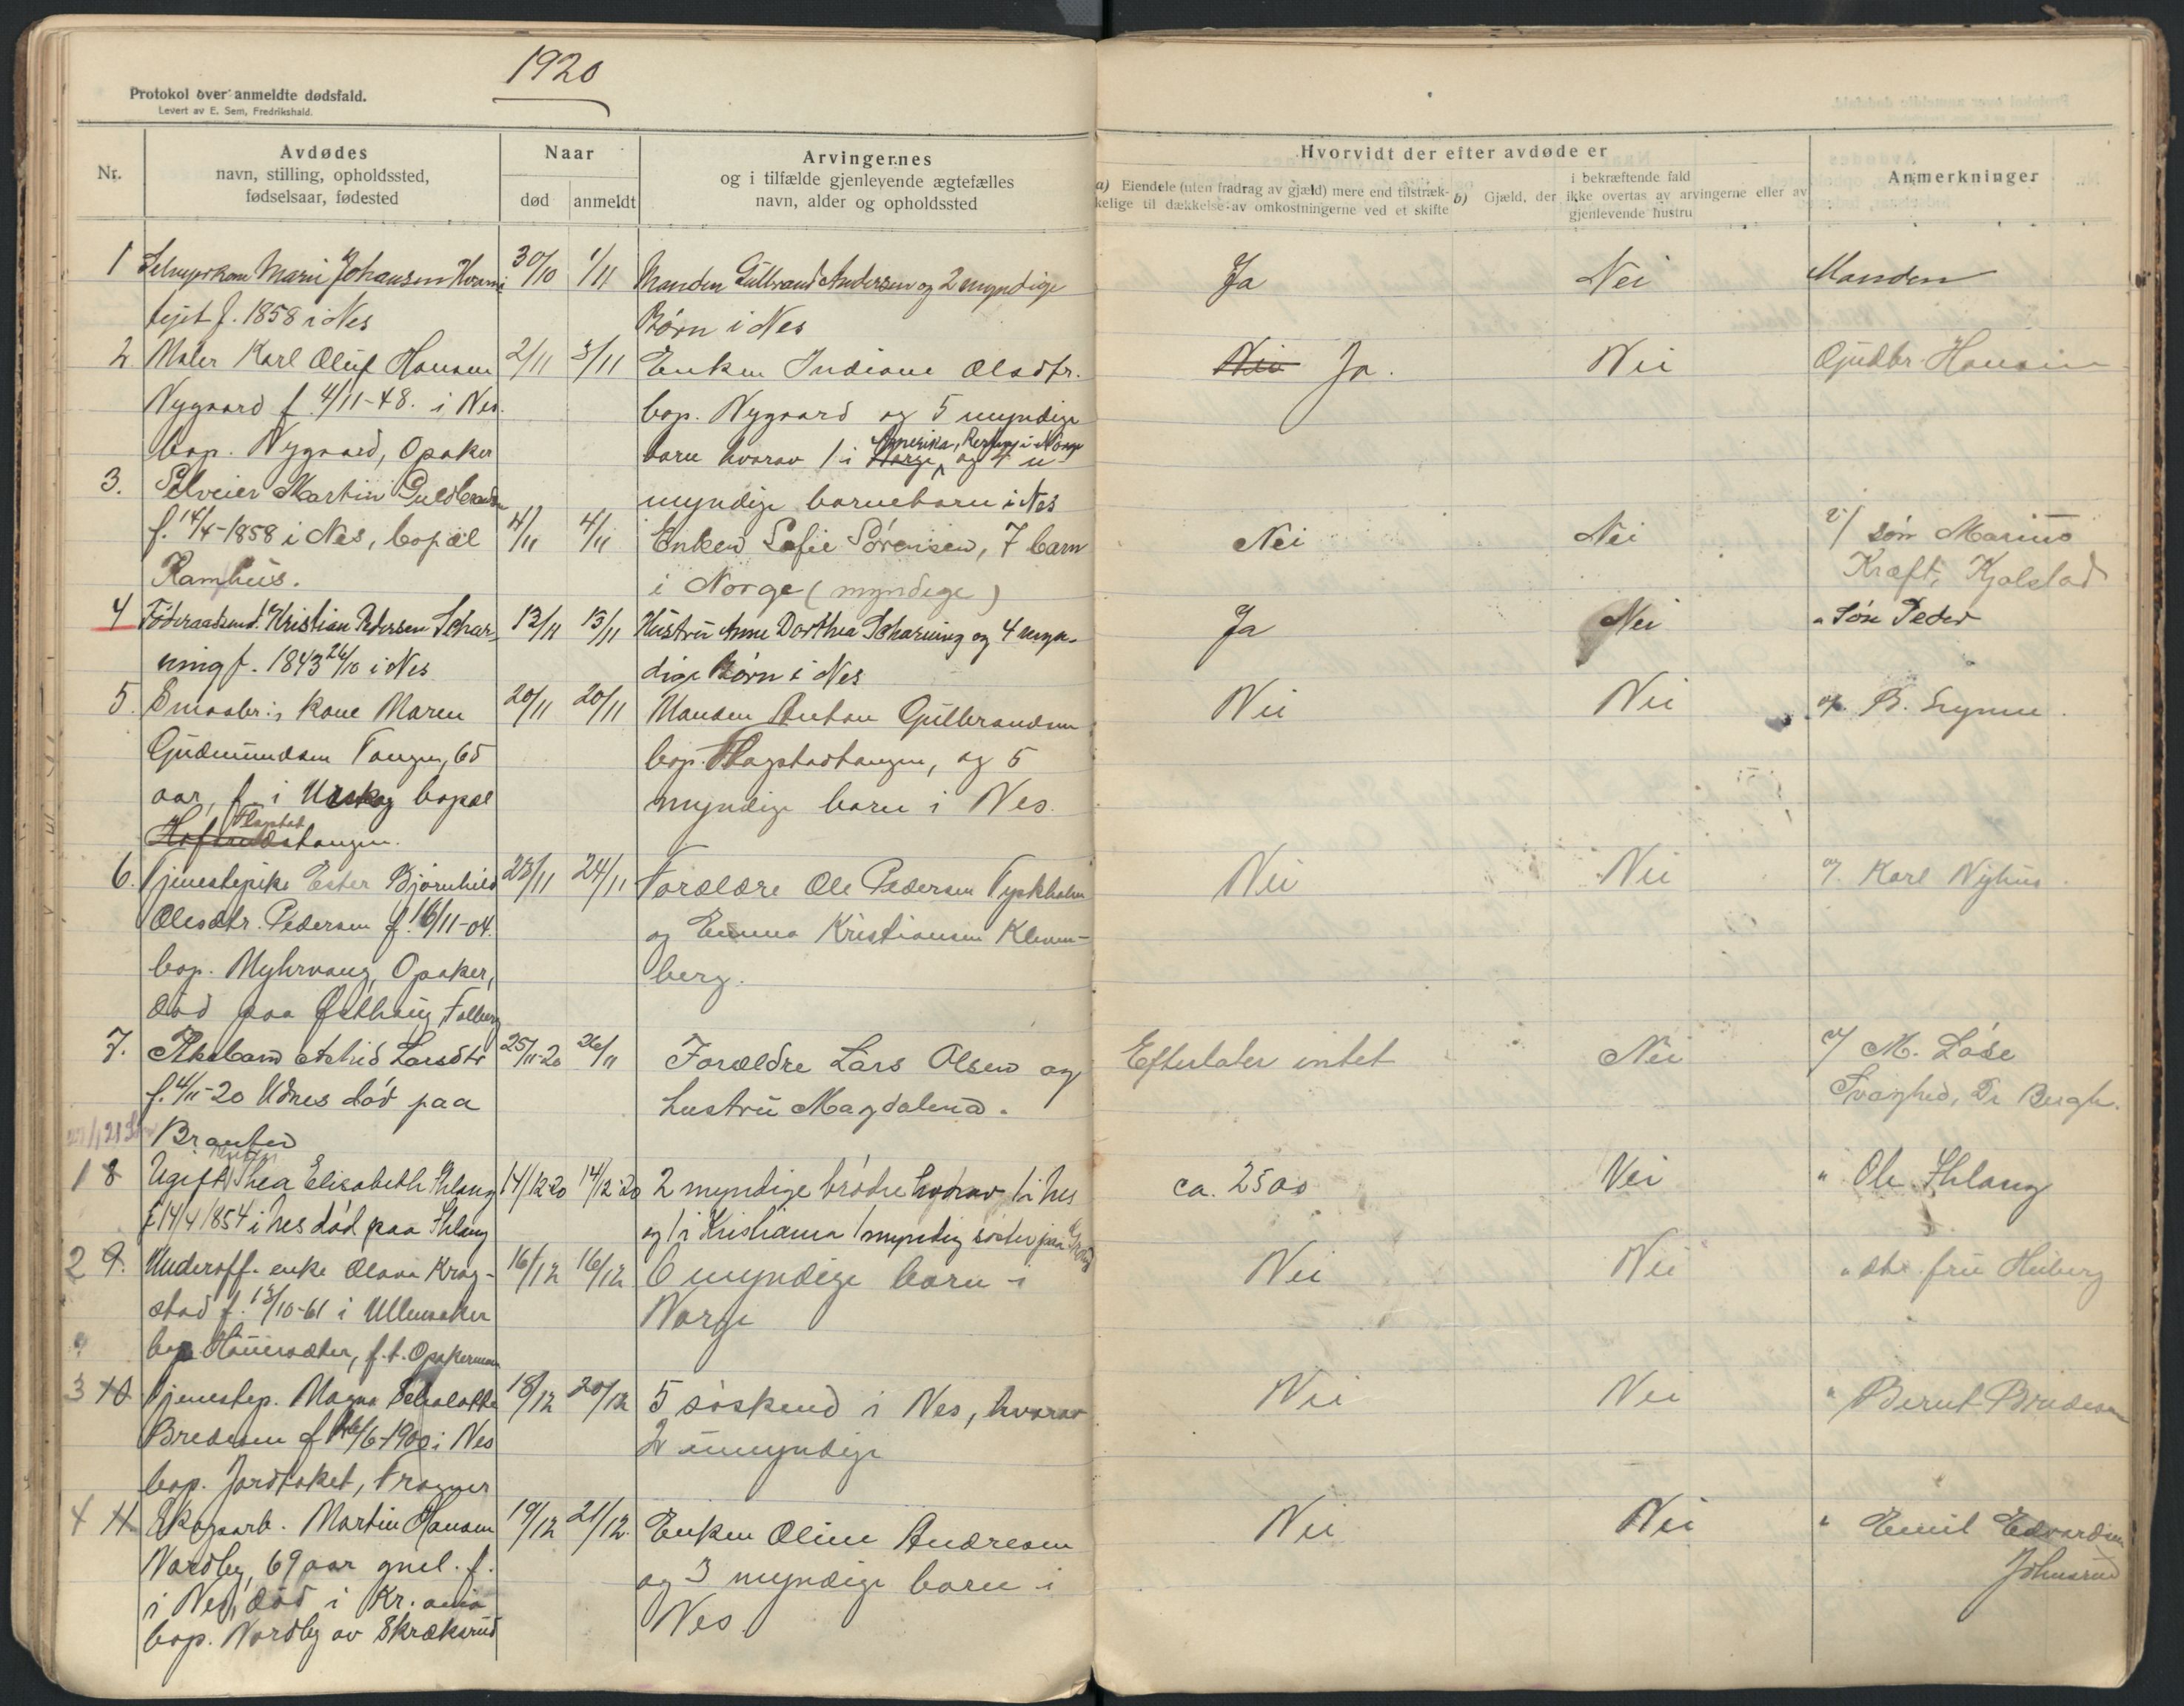 1920
Protokol over anmeldte dødsfald.
Levert av E. Sem, Fredrikshald.
Nr.
Avdødes
navn, stilling, opholdssted,
fødselsaar, fødested
Naar
død
anmeldt
Arvingernes
og i tilfælde gjenlevende ægtefælles
navn, alder og opholdssted
Hvorvidt der efter avdøde er
a) Eiendele (uten fradrag av gjæld) mere end tilstræk-
kelige til dækkelse av omkostningerne ved et skifte
i bekræftende fald
b) Gjæld, der ikke overtas av arvingerne eller av
gjenlevende hustru
Anmerkninger
1 Marie Johansen
f. 1858 i Nes
30/10 1/11
Manden Gulbrand Andersen og 2 myndige
Børn i Nes
Ja
Nei
Manden
2. Maler Karl Oluf Hansen
Nygaard f. 4/11-48. i Nes.
bop. Nygaard, Opaker
2/11 3/11
Enken Indiane Olsdtr.
bop. Nygaard og 5 myndige
barn hvorav 1 i Norge Amerika, Resten i Norge og 4 u-
myndige barnebarn i Nes
Nei Ja.
Nei
Gudbr. Hansen
3. Martin Guldbrandsen
f. 14/4-1858 i Nes, bopæl
Ramhus.
4/11 4/11
Enken Sofie Sørensen, 7 barn
i Norge (myndige)
Nei
Nei
v/ søn Marius
Kræft, Kjølstad
4 Føderaadsmd. Kristian Pedersen Schar-
ning f. 1843 26/10 i Nes
12/11 13/11
Hustru Anne Dorthea Scharning og 4 myn-
dige Børn i Nes
Ja
Nei
" Søn Peder
5. Smaabr.s kone Maren
Gudmundsen Tangen, 65
aar, f. i Urskog bopæl
Flagstad
stangen.
20/11 20/11
Manden Anton Gulbrandsen
bop. Flagstadtangen, og 5
myndige barn i Nes.
Nei
Nei
v/ B.
6. Tjenestepike Ester Bjørnhild
Olesdtr. Pedersen f. 16/11-04.
bop. Myhrvang, Opaker,
død paa Østhaug, Folberg
23/11 24/11
Forældre Ole Pedersen Tyskholm
og Emma Kristiansen Kleven-
berg.
Nei
Nei
v/ Karl Nyhus.
7. Pikebarn Astrid Larsdtr
f. 4/11-20 Udnes død paa
Braaten
25/11-20 26/11
Forældre Lars Olsen og
hustru Magdalena.
Efterlater intet
Nei
v/ M. Låse
Svaghed, Dr Bergh.
1 8 Ugift Thea Elisabeth Ihlang
f. 14/4 1854 i Nes død paa Ihlang
14/12-20 14/12-20
2 myndige brødre hvorav 1 i Nes
og 1 i Kristiania 1 myndig søster paa
ca. 2500
Nei
" Ole Ihlang
2 9. Underoff. enke Olava Krog-
stad f. 13/10-61 i Ullensaker
bop. Hauersæter, f.t. Opakermoen
16/12 16/12
6 myndige barn i
Norge
Nei
Nei
" dtr. fru Heiberg
3 10 Tjenestep. Magna
Bredesen f. 16/6-1900 i Nes
bop. Jordtaket, Frogner
18/12 20/12
5 søskend i Nes, hvorav
2 umyndige
Nei
Nei
" Bernt Bredesen
4 11 Skogsarb. Martin Hansen
Nordby, 69 aar gml. f.
i Nes, død i Kr.ania
bop. Nordby av Skræksrud
19/12 21/12.
Enken Oline Andresen
og 3 myndige barn i
Nes
Nei
Nei
" Emil Edvardsen
Johnsrud